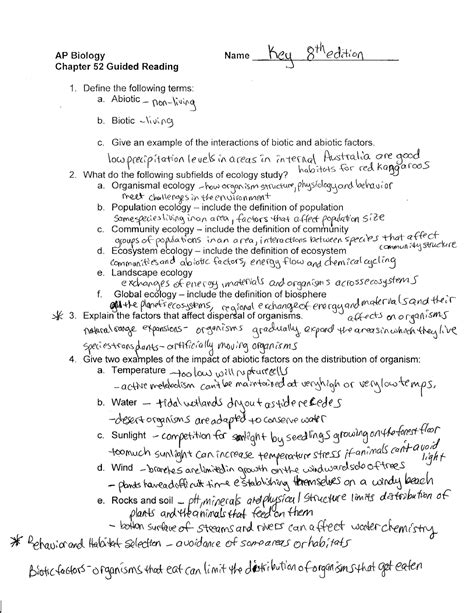 AP Biology Name Key 8th edition
Chapter 52 Guided Reading
1. Define the following terms:
a. Abiotic – non-living
b. Biotic – living
c. Give an example of the interactions of biotic and abiotic factors.
low precipitation levels in areas in internal Australia are good
habitats for red kangaroos
2. What do the following subfields of ecology study?
a. Organismal ecology – how organism structure, physiology and behavior
meet challenges in the environment
b. Population ecology – include the definition of population
same species living in an area, factors that affect population size
c. Community ecology – include the definition of community
groups of populations in an area, interactions between species that affect
community structure
d. Ecosystem ecology – include the definition of ecosystem
communities and abiotic factors, energy flow and chemical cycling
e. Landscape ecology
exchanges of energy, materials and organisms across ecosystems
f. Global ecology – include the definition of biosphere
the planet's ecosystems, regional exchange of energy and materials and their
affects on organisms
* 3. Explain the factors that affect dispersal of organisms.
natural range expansions – organisms gradually expand the areas in which they live
species transplants – artificially moving organisms
4. Give two examples of the impact of abiotic factors on the distribution of organism:
a. Temperature – too low will rupture cells
– active metabolism can't be maintained at very high or very low temps.
b. Water – tidal wetlands dry out as tide recedes
– desert organisms are adapted to conserve water
c. Sunlight – competition for sunlight by seedlings growing on the forest floor
– too much sunlight can increase temperature stress if animals can't avoid
light
d. Wind – branches are limited in growth on the windward side of trees
– plants have a difficult time establishing themselves on a windy beach
e. Rocks and soil – pH, minerals and physical structure limits distribution of
plants and the animals that feed on them
– bottom surface of streams and rivers can affect water chemistry
* Behavior and Habitat Selection – avoidance of some areas or habitats
Biotic factors – organisms that eat can limit the distribution of organisms that get eaten